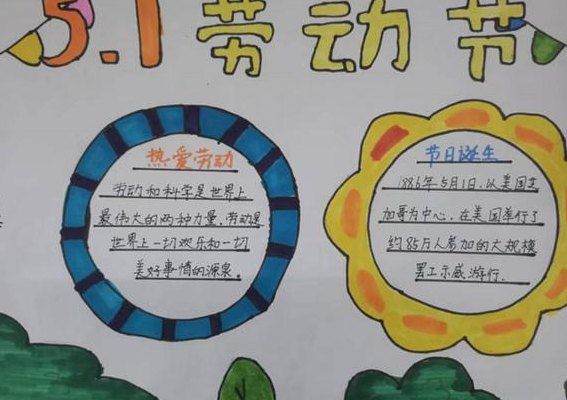 5.1劳动节
热爱劳动
劳动和科学是世界上
最伟大的两种力量，劳动是
世界上一切欢乐和一切
美好事情的源泉。
节日诞生
1886年5月1日，以美国芝
加哥为中心，在美国举行了
约35万人参加的大规模
罢工示威游行.